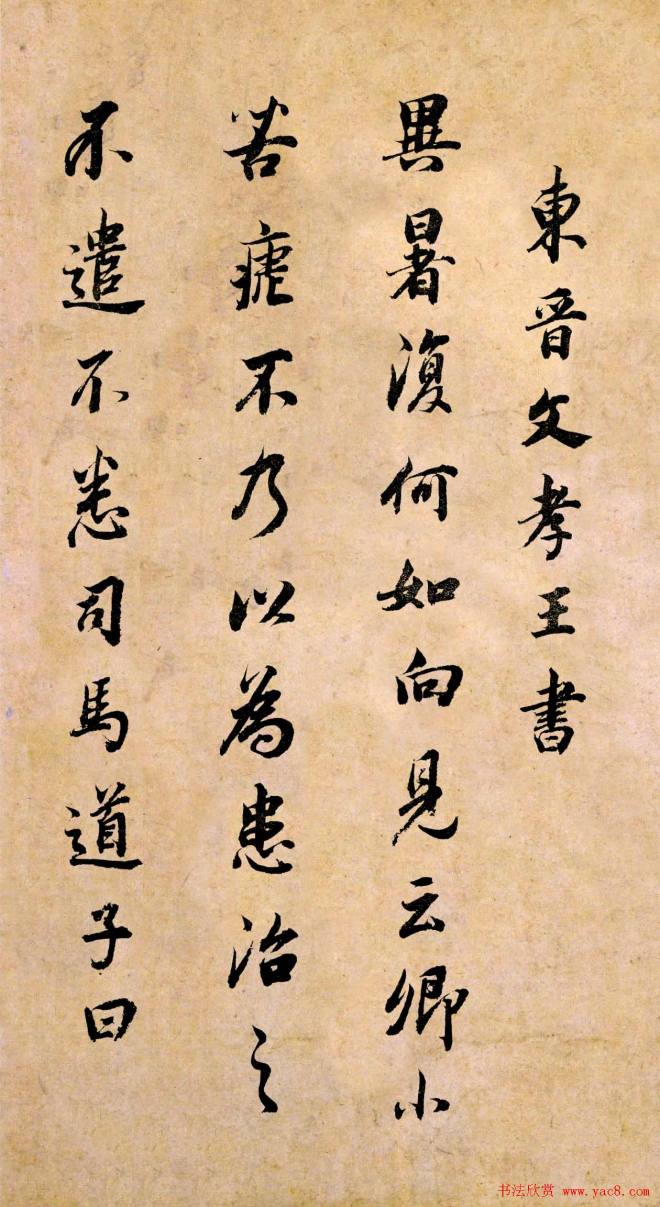 東晋文孝王書
異暑復何如向見云卿小
苦瘧不乃以為患治之
不遣不悉司馬道子曰
书法欣赏 www.yac8.com